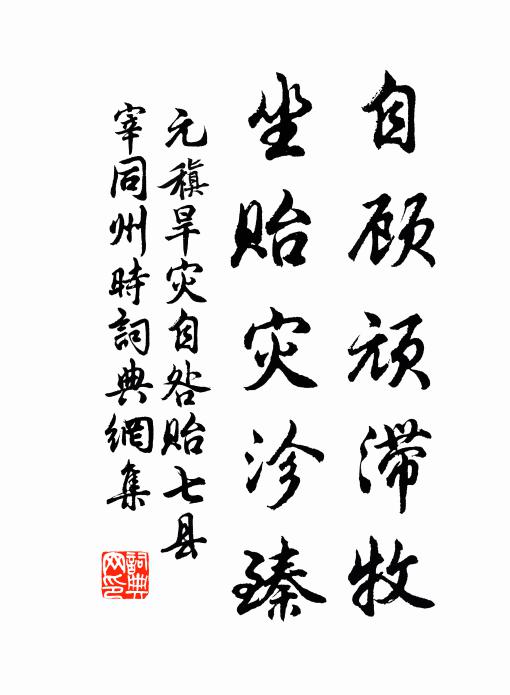 自顾顽滞牧
坐贻灾沴臻
元稹旱灾自咎贻七县
宰同州時詞典網集
詞典
网印